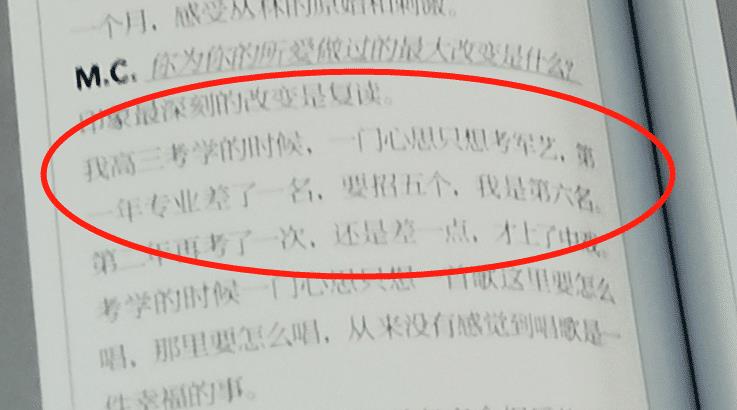 一个月，感受丛林的原始和刺激。
M.C. 你为你的所爱做过的最大改变是什么？
印象最深刻的改变是复读。
我高三考学的时候，一门心思只想考军艺，第
一年专业差了一名，要招五个，我是第六名。
第二年再考了一次，还是差一点，才上了中戏。
考学的时候一门心思只想一首歌这里要怎么
唱，那里要怎么唱，从来没有感觉到唱歌是一
件幸福的事。